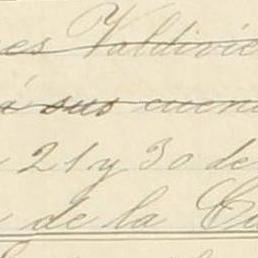 es Valdivie
á sus cuen
21 y 30 de
de la C